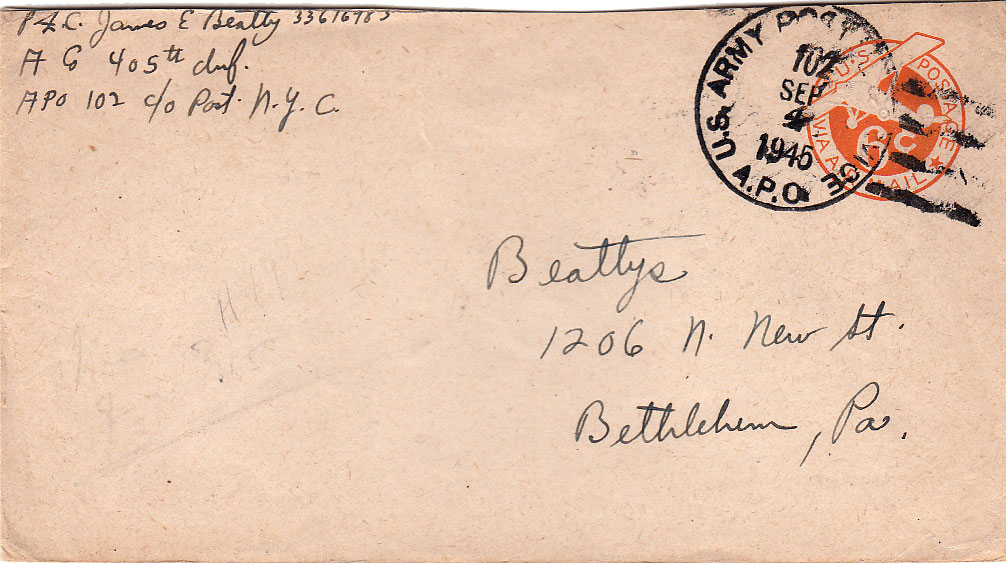 Pfc. James E Beatty 33616983
A G 405th Inf.
APO 102 c/o Post. N.Y.C.
U.S. ARMY POSTAL
A.P.O.
102
SEP
1945
U.S. POSTAGE
6c
VIA AIR MAIL
Beattys
1206 N. New St.
Bethlehem, Pa.